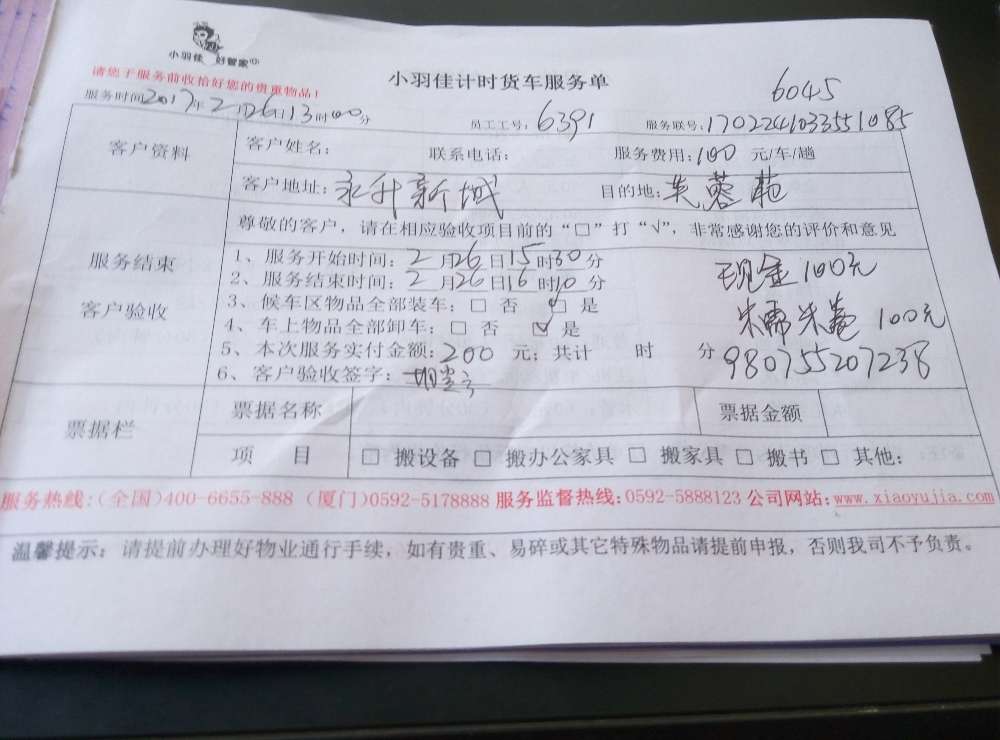 小羽佳 好管家
请您于服务前收拾好您的贵重物品!
小羽佳计时货车服务单
6045
服务时间2017年2月26日13时00分 员工工号: 6391 服务联号:1702241033551085
客户资料 客户姓名: 联系电话: 服务费用:100 元/车/趟
客户地址:永升新城 目的地:芙蓉苑
尊敬的客户,请在相应验收项目前的“□”打“√”,非常感谢您的评价和意见
服务结束
客户验收
1、服务开始时间:2月26日15时30分
2、服务结束时间:2月26日16时10分
3、候车区物品全部装车:□ 否 ☑ 是
4、车上物品全部卸车:□ 否 ☑ 是
5、本次服务实付金额:200 元;共计 时 分
6、客户验收签字:
现金100元
100元
980755207238
票据栏 票据名称 票据金额
项 目 □ 搬设备 □ 搬办公家具 □ 搬家具 □ 搬书 □ 其他:
服务热线:(全国)400-6655-888 (厦门)0592-5178888 服务监督热线:0592-5888123 公司网站:www.xiaoyujia.com
温馨提示:请提前办理好物业通行手续,如有贵重、易碎或其它特殊物品请提前申报,否则我司不予负责。